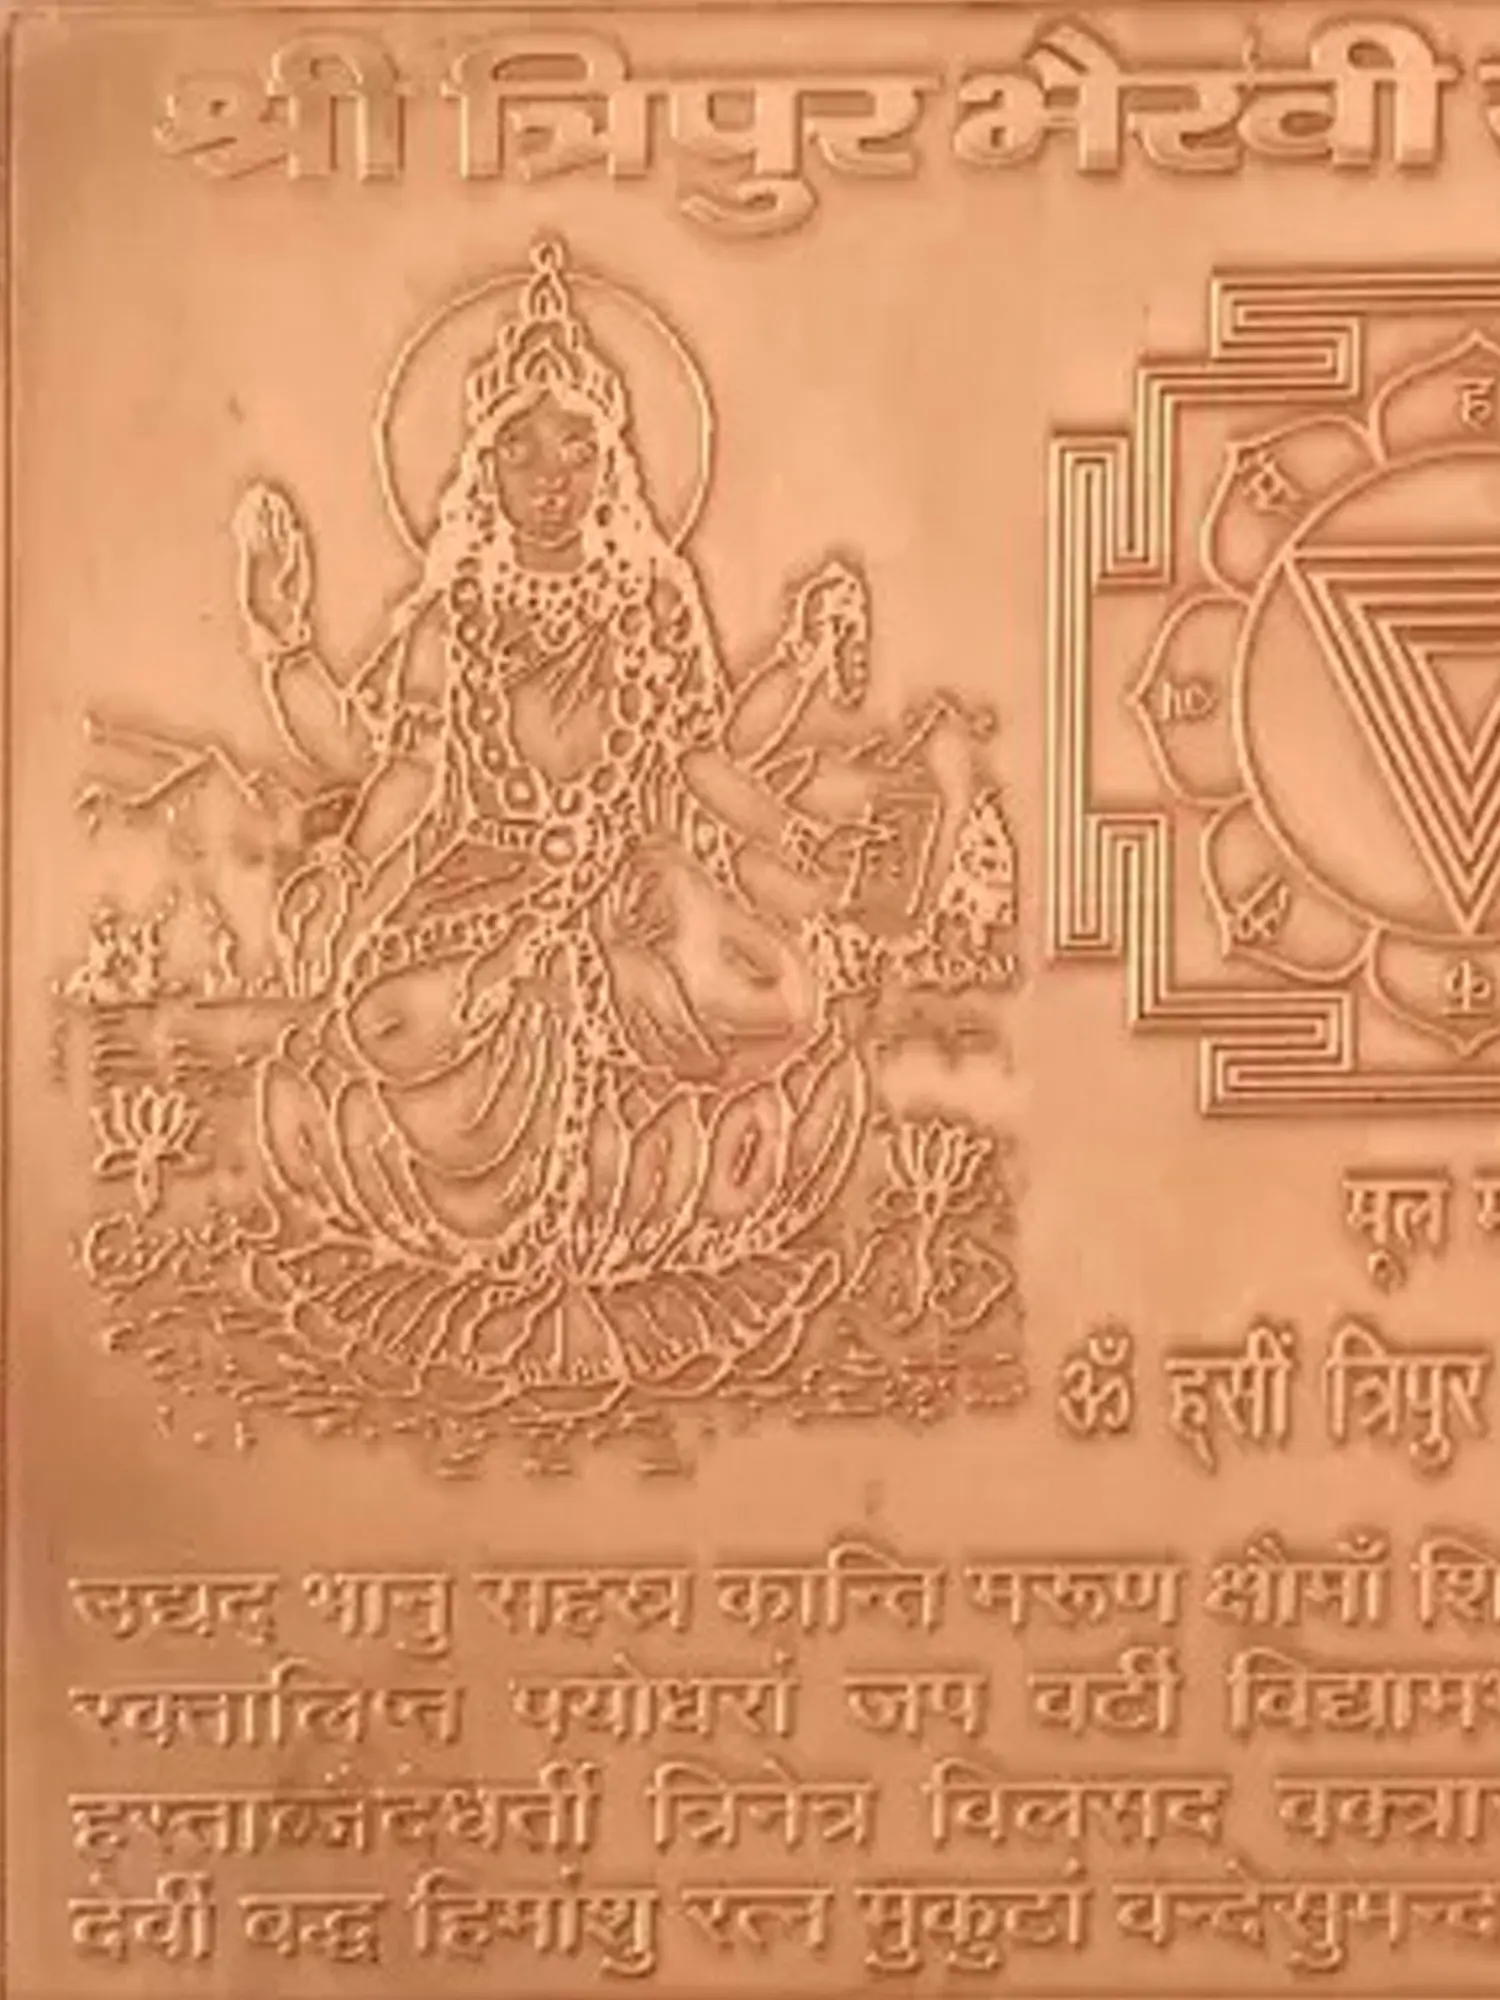 श्री त्रिपुर भैरवी
ह
मूल
ॐ ह्सीं त्रिपुर
उद्यद् भानु सहस्र कान्ति मरूण क्षौमाँ शि
रक्तालिप्त पयोधरां जप वटीं विद्याम
हस्ताब्जंदंधतीं त्रिनेत्र विलसद वक्त्रा
देवीं बद्ध हिमांशु रत्न मुकुटां वन्देसुमन्द